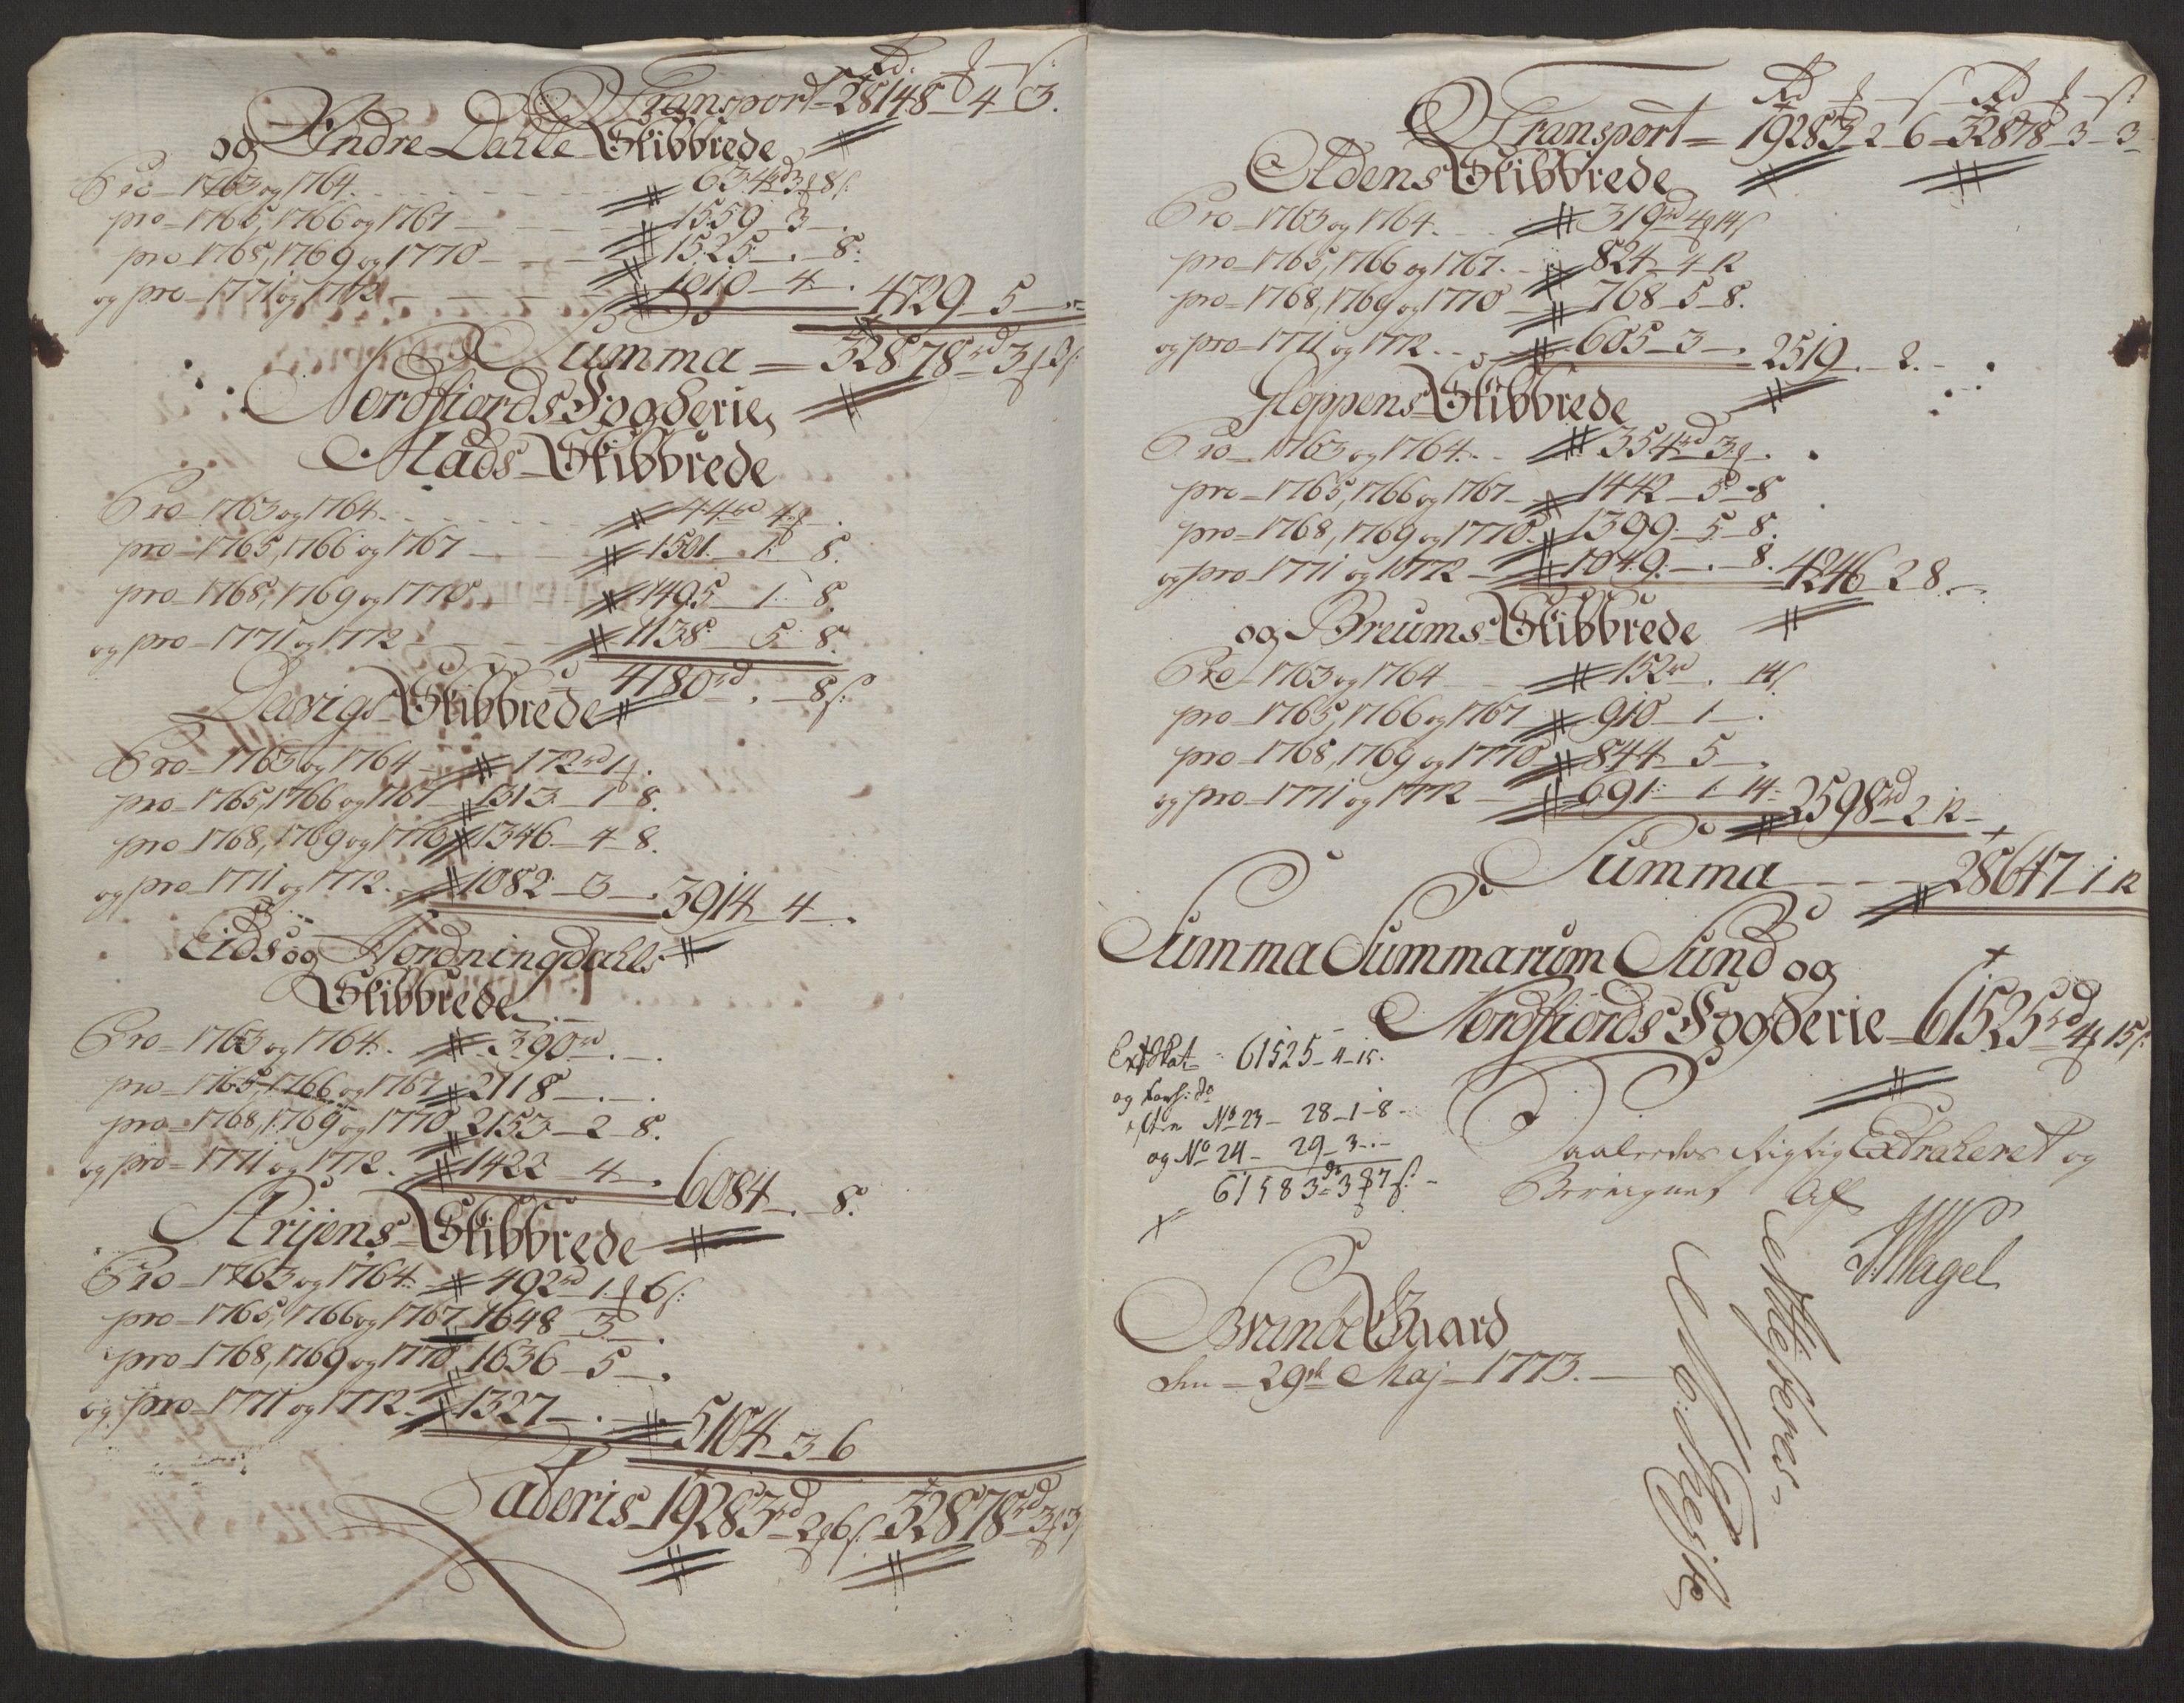 Rd. f s:
Transport = 28148 - 4 - 3.
og Indre Dahle Skibbrede
Pro - 1763 og 1764. 634rd 3f 8s.
pro - 1765, 1766 og 1767 - 1559 - 3 - .
pro - 1768, 1769 og 1770 - 1525 - . - 8.
og pro - 1771 og 1772 - 1010 - 4 - . 4729 - 5 -
Summa = 32878rd 3f 3s
Nordfiords Fogderie,
Skibbrede
Pro - 1763 og 1764. 44rd 4f - .
pro - 1765, 1766 og 1767 - 1501 - 1 - 8.
pro - 1768, 1769 og 1770 - 1495 - 1 - 8.
og pro - 1771 og 1772 - 1138 - 5 - 8.
Davigs Skibbrede 4180rd . - 8s.
Pro - 1763 og 1764 - 172rd 1f.
pro - 1765, 1766 og 1767 - 1313 - 1 - 8.
pro - 1768, 1769 og 1770 1346 - 4 - 8.
og pro - 1771 og 1772. - 1082 - 3 - . 3914 - 4 - .
Eids og Hordningdahls
Skibbrede
Pro - 1763 og 1764. 390rd . - .
pro - 1765, 1766 og 1767 2118 - . - .
pro - 1768, 1769 og 1770 2153 - 2 - 8.
og pro - 1771 og 1772. 1422 - 4 - . 6084 - . - 8.
Skibbrede
Pro - 1763 og 1764. 492rd 1f 6s:
pro - 1765, 1766 og 1767 1648 - 3 - .
pro - 1768, 1769 og 1770 1636 - 5 - .
og pro - 1771 og 1772. 1327 - . - . 5104 - 3 - 6
Lateris 19283rd 2f 6s. 32878rd 3f 3s
Rd f s Rd f s:
Transport = 19283 - 2 - 6 - 32878 - 3 - 3
Oldens Skibbrede
Pro - 1763 og 1764. - 319rd 4f 14s
pro - 1765, 1766 og 1767. - 824 - 4 - 12
pro - 1768, 1769 og 1770 - 768 - 5 - 8.
og pro - 1771 og 1772. - 605 - 3 - . 2519 - . - 2. -
Gloppens Skibbrede
Pro - 1763 og 1764. - 354rd 3f - .
pro - 1765, 1766 og 1767 - 1442 - 5 - 8
pro - 1768, 1769 og 1770. 1399 - 5 - 8.
og pro - 1771 og 1772 - 1049 - . - 8. 4246 - 2 8. -
og Breums Skibbrede
Pro - 1763 og 1764 - 152rd . 14s
pro - 1765, 1766 og 1767 910 - 1 - .
pro - 1768, 1769 og 1770 844 - 5 - .
og pro - 1771 og 1772 - 691 - 1 - 14 - 2598rd - 2 12 -
Summa - - - 28647 - 1 12
Summa Summarum Sund og
Nordfiords Fogderie - 61525rd 4f 15s:
Extskat - 61525 - 4 - 15.
og forh: do
efter No 23 - 28 - 1 - 8 -
og No 24 - 29 - 3 - . -
61583rd - 3f 7s. -
Saaledes rigtig Extraheret og
Beregnet Af
Nagel
Brunde Gaard
den - 29de Maj - 1773.